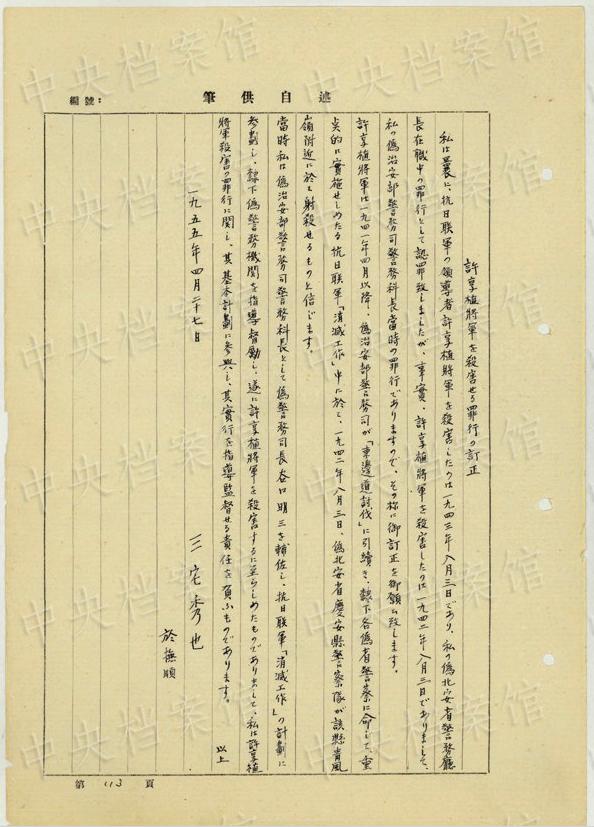 編號：
筆供自述
許享植將軍を殺害せる罪行の訂正
私は曩に、抗日联軍の領導者許享植將軍を殺害したのは一九四三年八月三日であり、私の偽北安省警務廳
長在職中の罪行として認罪致しましたが、事実、許享植將軍を殺害したのは一九四二年八月三日でありまして、
私の偽治安部警務司警務科長當時の罪行でありますので、その様に御訂正を御願ひ致します。
許享植將軍は一九四一年四月以降、偽治安部警務司が「東邊道討伐」に引續き、隷下各偽省警察に命して、重
点的に実施せしめたる抗日联軍「消滅工作」中に於て、一九四二年八月三日、偽北安省慶安縣警察隊が該縣青風
嶺附近に於て射殺せるものと信じます。
當時私は偽治安部警務司警務科長として偽警務司長谷口明三を輔佐し、抗日联軍「消滅工作」の計劃に
参劃し、隷下偽警務機関を指導督勵し、遂に許享植將軍を殺害するに至らしめたものでありまして、私は許享植
將軍殺害の罪行に関し、其基本計劃に参與し、其実行を指導監督せる責任を負ふものであります。
以上
一九五五年四月二十七日
三宅秀也
於撫順
第 113 頁
中央档案馆